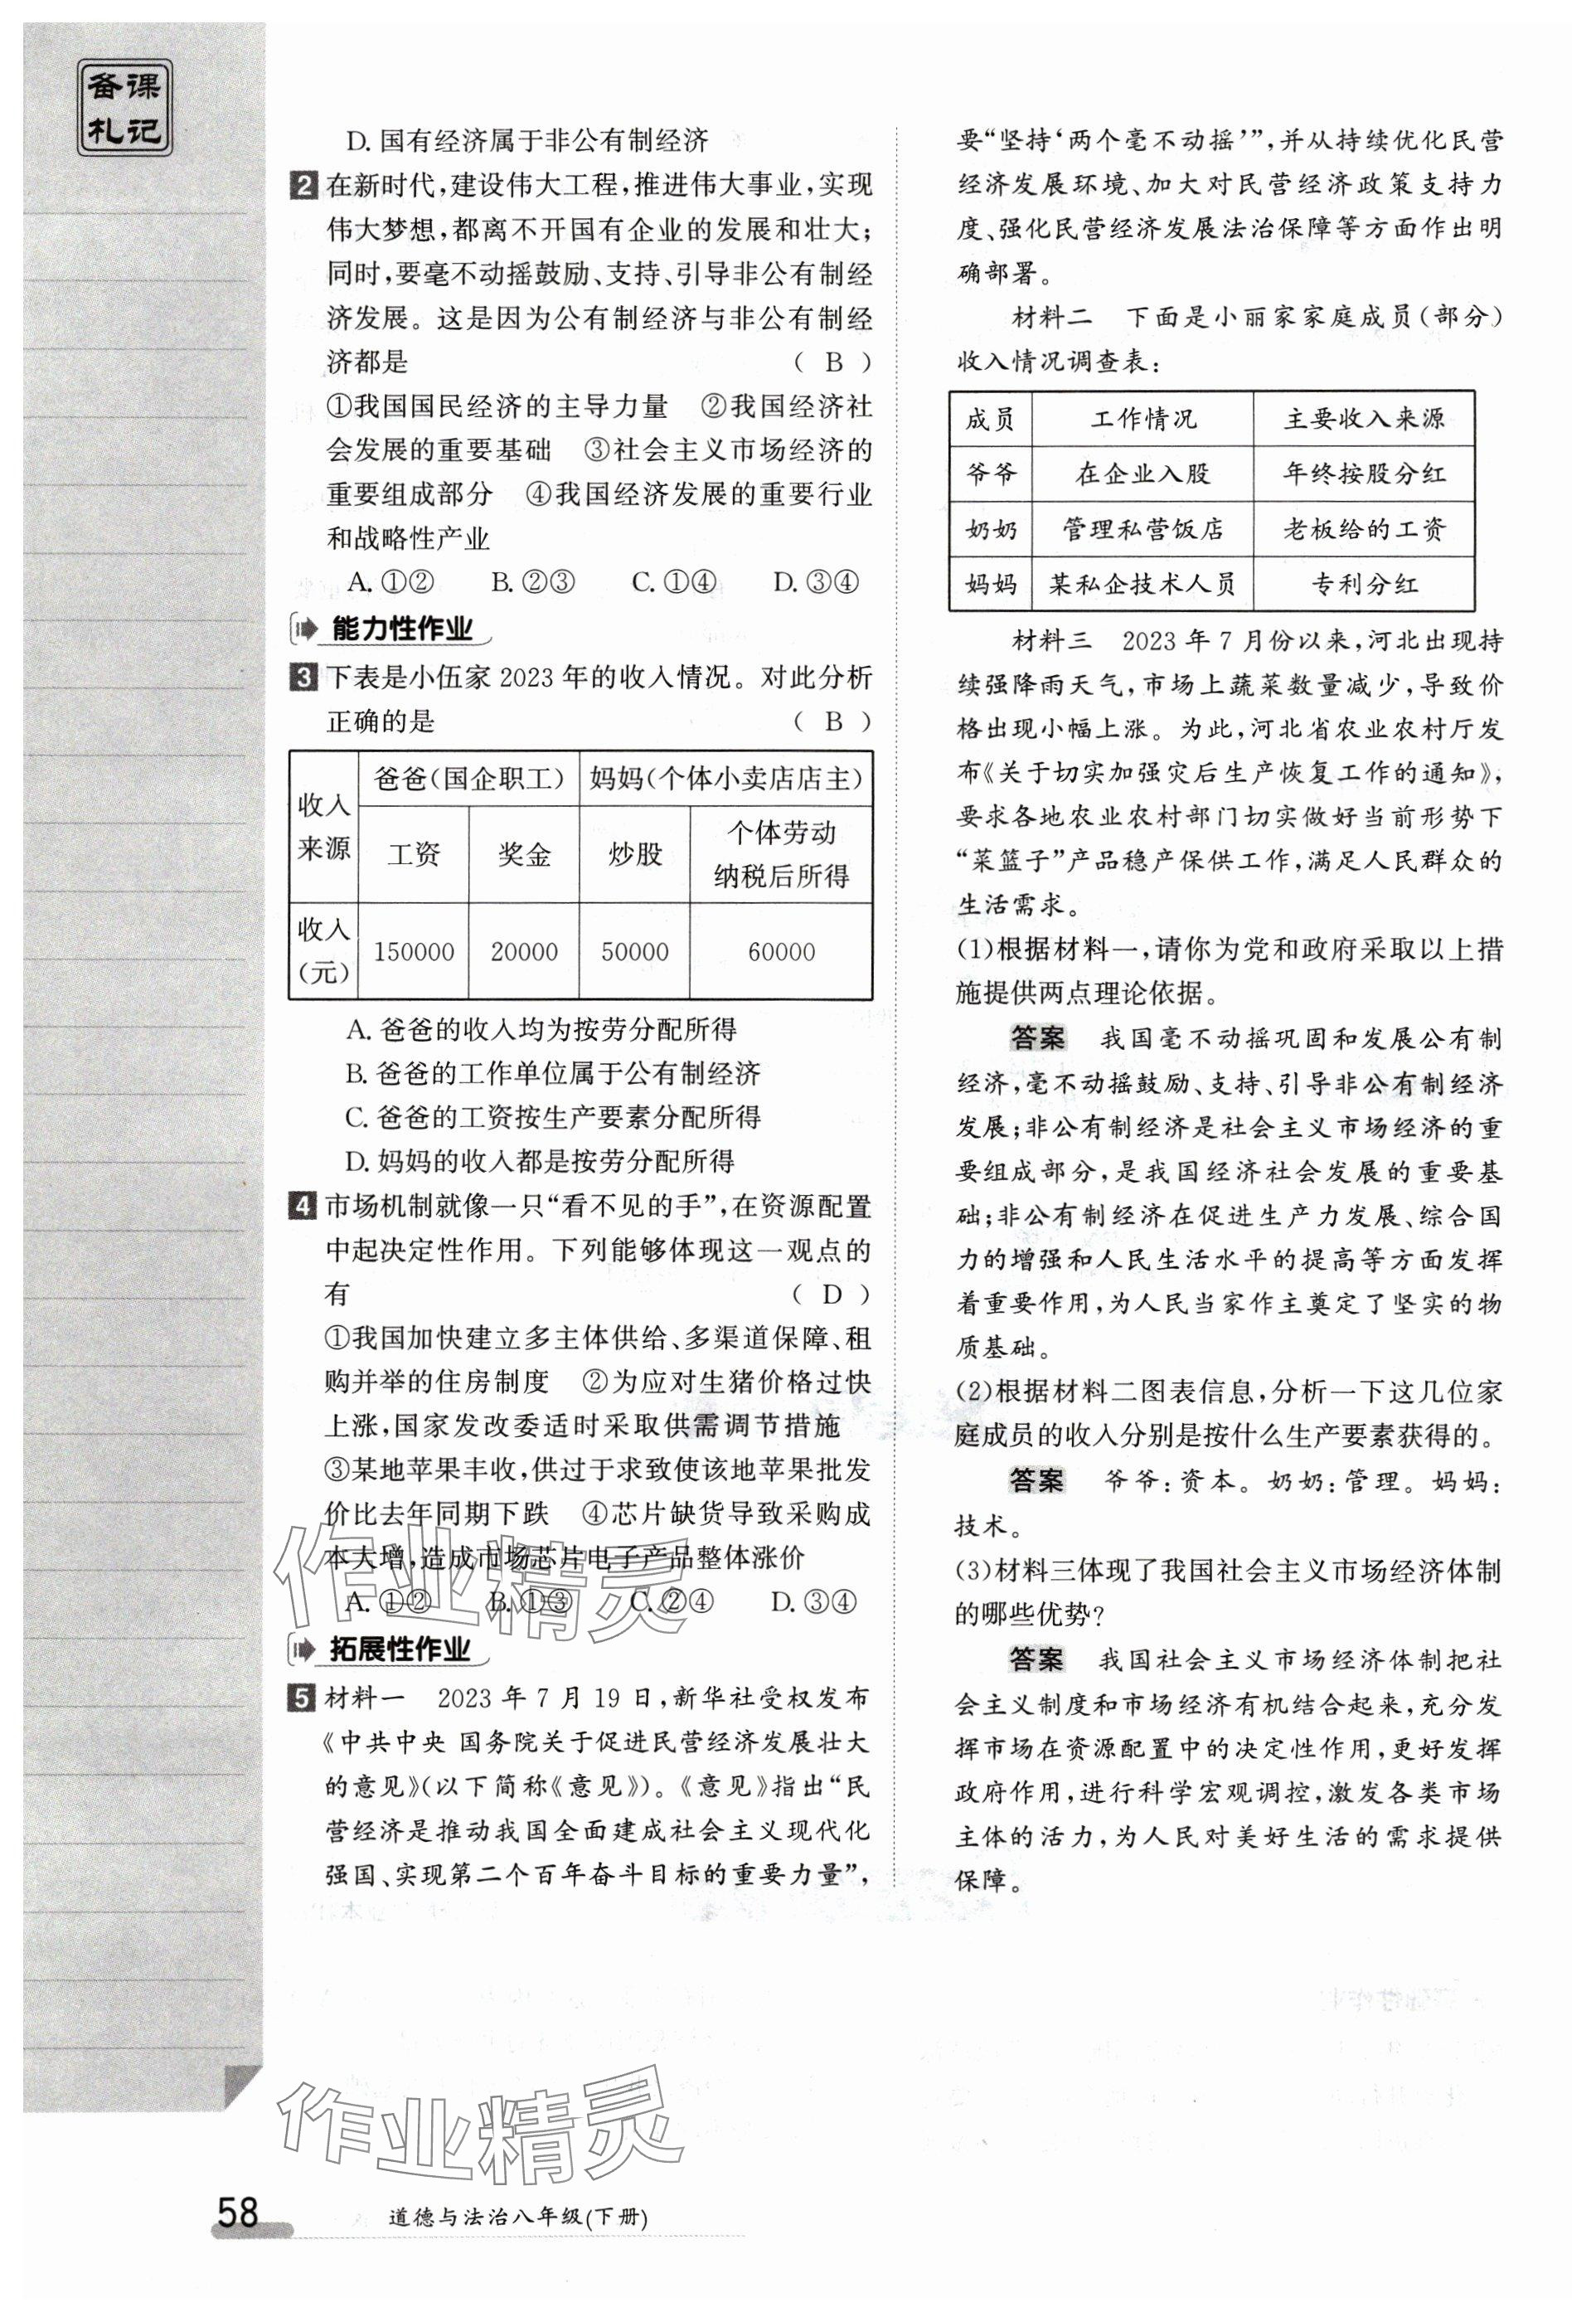 备课
札记
D. 国有经济属于非公有制经济
2 在新时代,建设伟大工程,推进伟大事业,实现
伟大梦想,都离不开国有企业的发展和壮大;
同时,要毫不动摇鼓励、支持、引导非公有制经
济发展。这是因为公有制经济与非公有制经
济都是 ( B )
①我国国民经济的主导力量 ②我国经济社
会发展的重要基础 ③社会主义市场经济的
重要组成部分 ④我国经济发展的重要行业
和战略性产业
A. ①② B. ②③ C. ①④ D. ③④
能力性作业
3 下表是小伍家 2023 年的收入情况。对此分析
正确的是 ( B )
收入来源 爸爸(国企职工) 妈妈(个体小卖店店主)
工资 奖金 炒股 个体劳动纳税后所得
收入(元) 150000 20000 50000 60000
A. 爸爸的收入均为按劳分配所得
B. 爸爸的工作单位属于公有制经济
C. 爸爸的工资按生产要素分配所得
D. 妈妈的收入都是按劳分配所得
4 市场机制就像一只“看不见的手”,在资源配置
中起决定性作用。下列能够体现这一观点的
有 ( D )
①我国加快建立多主体供给、多渠道保障、租
购并举的住房制度 ②为应对生猪价格过快
上涨,国家发改委适时采取供需调节措施
③某地苹果丰收,供过于求致使该地苹果批发
价比去年同期下跌 ④芯片缺货导致采购成
本大增,造成市场芯片电子产品整体涨价
A. ①② B. ①③ C. ②④ D. ③④
拓展性作业
5 材料一 2023 年 7 月 19 日,新华社受权发布
《中共中央 国务院关于促进民营经济发展壮大
的意见》(以下简称《意见》)。《意见》指出“民
营经济是推动我国全面建成社会主义现代化
强国、实现第二个百年奋斗目标的重要力量”,
要“坚持‘两个毫不动摇’”,并从持续优化民营
经济发展环境、加大对民营经济政策支持力
度、强化民营经济发展法治保障等方面作出明
确部署。
材料二 下面是小丽家家庭成员(部分)
收入情况调查表:
成员 工作情况 主要收入来源
爷爷 在企业入股 年终按股分红
奶奶 管理私营饭店 老板给的工资
妈妈 某私企技术人员 专利分红
材料三 2023 年 7 月份以来,河北出现持
续强降雨天气,市场上蔬菜数量减少,导致价
格出现小幅上涨。为此,河北省农业农村厅发
布《关于切实加强灾后生产恢复工作的通知》,
要求各地农业农村部门切实做好当前形势下
“菜篮子”产品稳产保供工作,满足人民群众的
生活需求。
(1)根据材料一,请你为党和政府采取以上措
施提供两点理论依据。
答案 我国毫不动摇巩固和发展公有制
经济,毫不动摇鼓励、支持、引导非公有制经济
发展;非公有制经济是社会主义市场经济的重
要组成部分,是我国经济社会发展的重要基
础;非公有制经济在促进生产力发展、综合国
力的增强和人民生活水平的提高等方面发挥
着重要作用,为人民当家作主奠定了坚实的物
质基础。
(2)根据材料二图表信息,分析一下这几位家
庭成员的收入分别是按什么生产要素获得的。
答案 爷爷:资本。奶奶:管理。妈妈:
技术。
(3)材料三体现了我国社会主义市场经济体制
的哪些优势?
答案 我国社会主义市场经济体制把社
会主义制度和市场经济有机结合起来,充分发
挥市场在资源配置中的决定性作用,更好发挥
政府作用,进行科学宏观调控,激发各类市场
主体的活力,为人民对美好生活的需求提供
保障。
作业精灵
作业精灵
58 道德与法治八年级(下册)